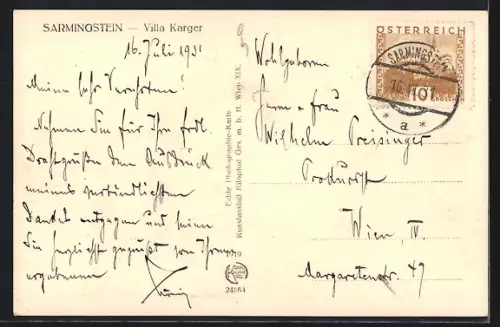 SARMINGSTEIN — Villa Karger
16. Juli 1931
Meine sehr Verehrten!
Nehmen Sie für Ihre frdl.
Drahtgrüße den Ausdruck
meines verbindlichsten
Dankes entgegen und seien
Sie herzlichst gegrüßt von Ihrem
ergebenen
Echte Photographie-Karte
Kunstanstalt Kilophot Ges. m. b. H. Wien XIX.
24864
ÖSTERREICH
SARMINGSTEIN
* a *
Wohlgeboren
Herrn u Frau
Wilhelm Preisinger
Prokurist
Wien, IV.
Margaretenstr. 47